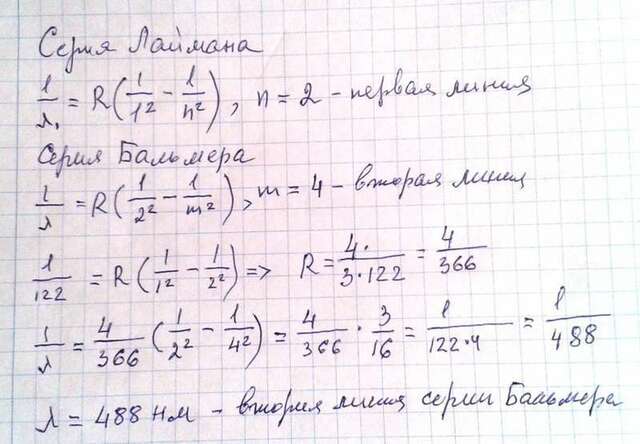 Серия Лаймана
1/λ₁ = R(1/1² − 1/n²), n = 2 – первая линия
Серия Бальмера
1/λ = R(1/2² − 1/m²), m = 4 – вторая линия
1/122 = R(1/1² − 1/2²) => R = 4·/3·122 = 4/366
1/λ = 4/366 (1/2² − 1/4²) = 4/366 · 3/16 = 1/122·4 = 1/488
λ = 488 нм – вторая линия серии Бальмера